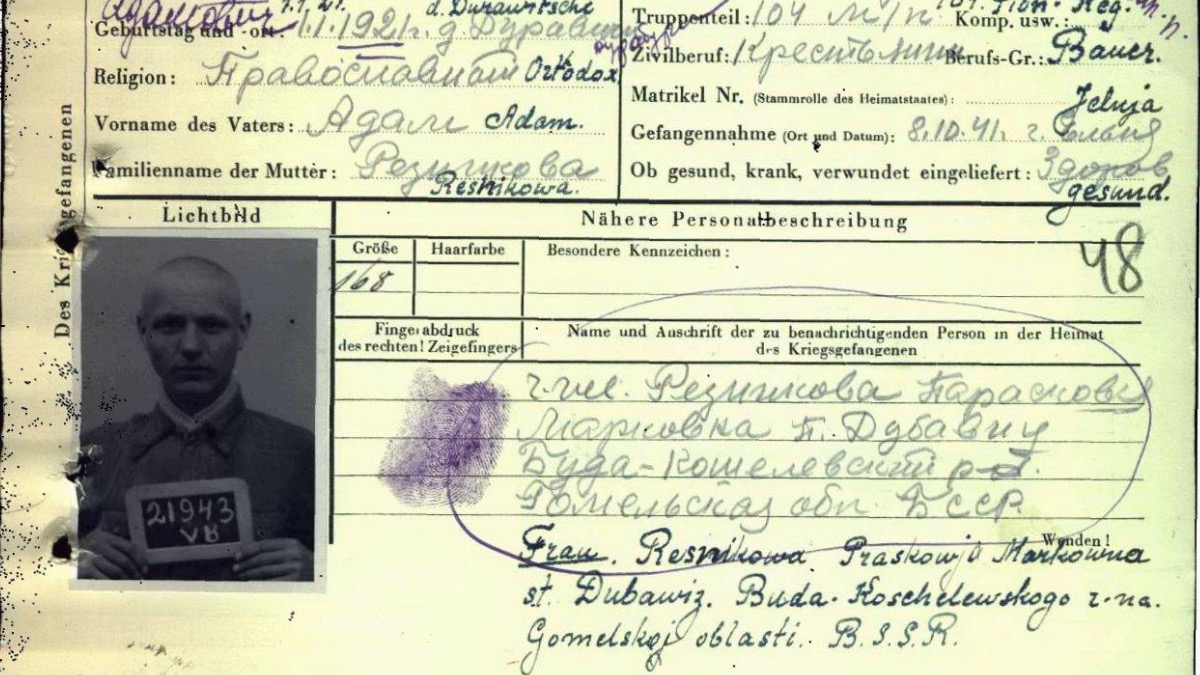 Адамович 1.1.21. d. Durawitsche
Geburtstag und -ort 1.1.1921г. д
Religion: Православный Ortodox
Vorname des Vaters: Адам Adam.
Familienname der Mutter: Резникова
Resnikowa.
Truppenteil: 104 Komp. usw.:
Zivilberuf: Крестьянин Berufs-Gr.: Bauer.
Matrikel Nr. (Stammrolle des Heimatstaates):
Jelnja
Gefangennahme (Ort und Datum): 8.10.41. г. Ельня
Ob gesund, krank, verwundet eingeliefert: Здоров
gesund.
Des Kriegsgefangenen
Lichtbild
21943
VB
Nähere Personalbeschreibung
Größe Haarfarbe Besondere Kennzeichen:
168
48
Fingerabdruck
des rechten! Zeigefingers
Name und Anschrift der zu benachrichtigenden Person in der Heimat
des Kriegsgefangenen
Резникова Парасковья
Марковна Дубавиц
Буда-Кошелевский
Гомельская обл БССР
Wenden!
Frau. Resnikowa Praskowja Markowna
st. Dubawiz. Buda-Koschelewskogo r-na.
Gomelskoj oblasti. B.S.S.R.